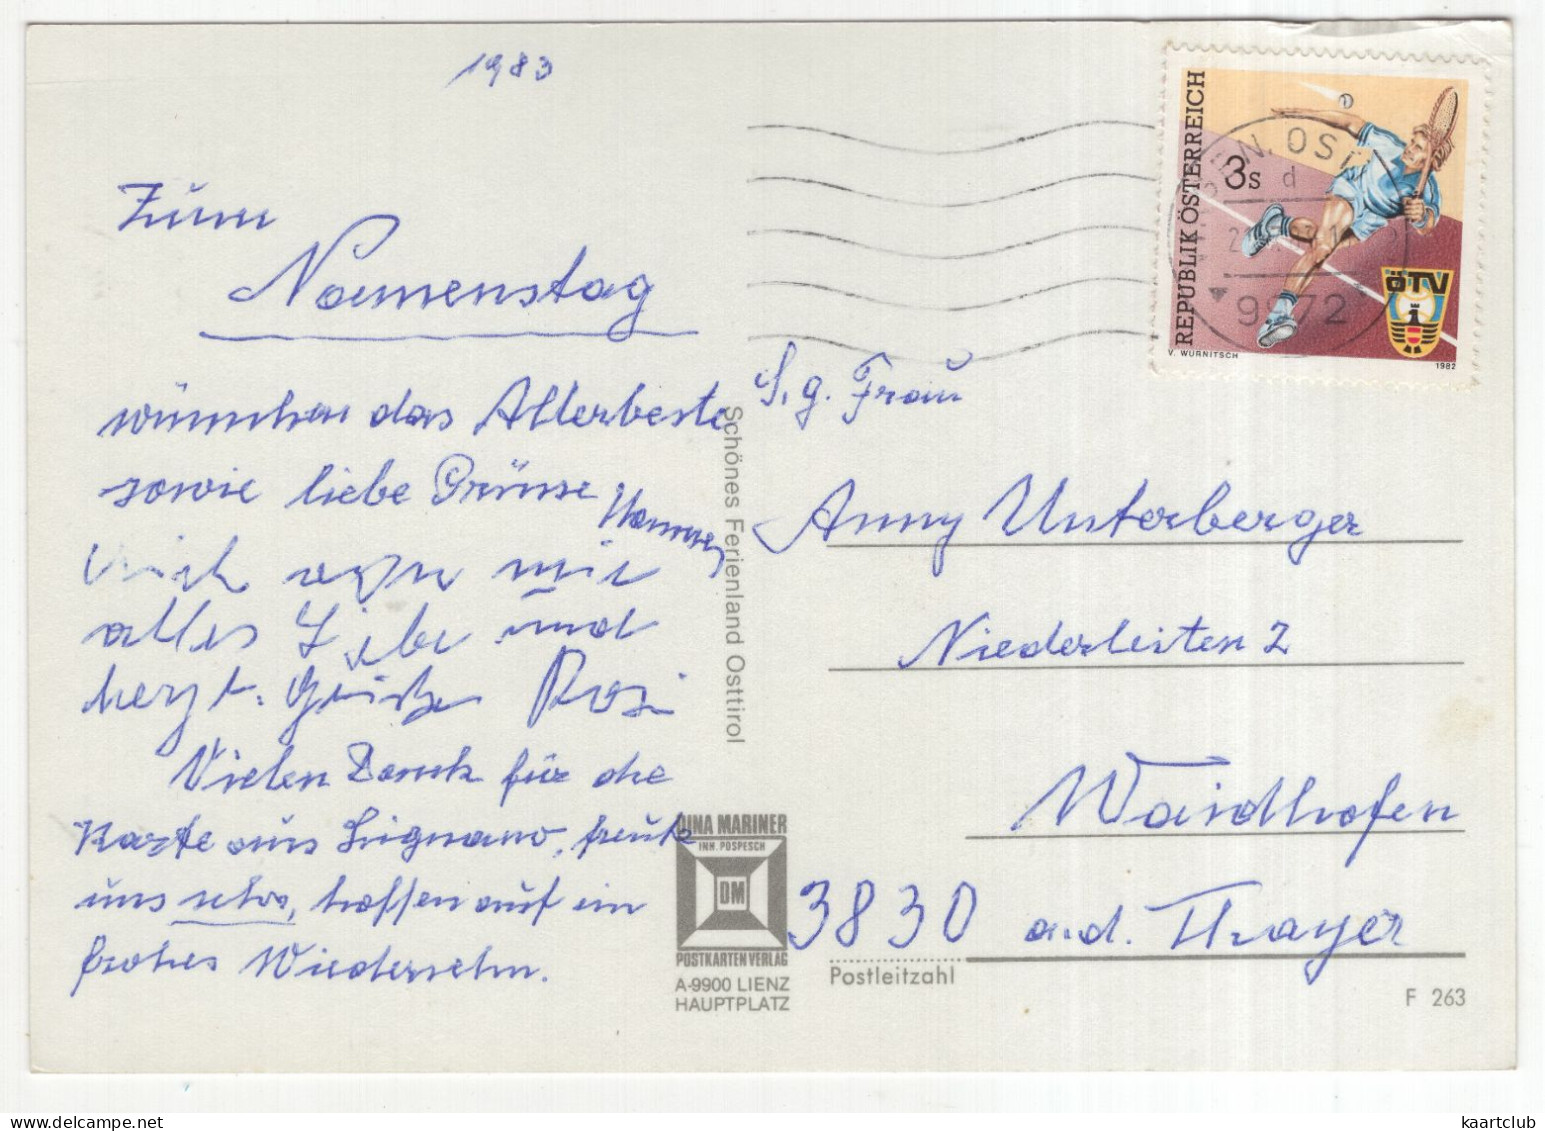 1983
Zum
Namenstag
wünschen das Allerbeste
sowie liebe Grüsse
Auch von mir
alles Liebe und
herzl. Grüße Rosi
Vielen Dank für die
Karte aus Lignano, freute
uns sehr, hoffen auf ein
frohes Wiedersehn.
Schönes Ferienland Osttirol
DINA MARINER
INH. POSPESCH
DM
POSTKARTENVERLAG
A-9900 LIENZ
HAUPTPLATZ
REPUBLIK ÖSTERREICH
3s
ÖTV
V. WURNITSCH
1982
d
9972
S. g. Frau
Anny Unterberger
Niederleiten 2
Waidhofen
3830 a.d. Thaya
Postleitzahl
F 263
kaartclub